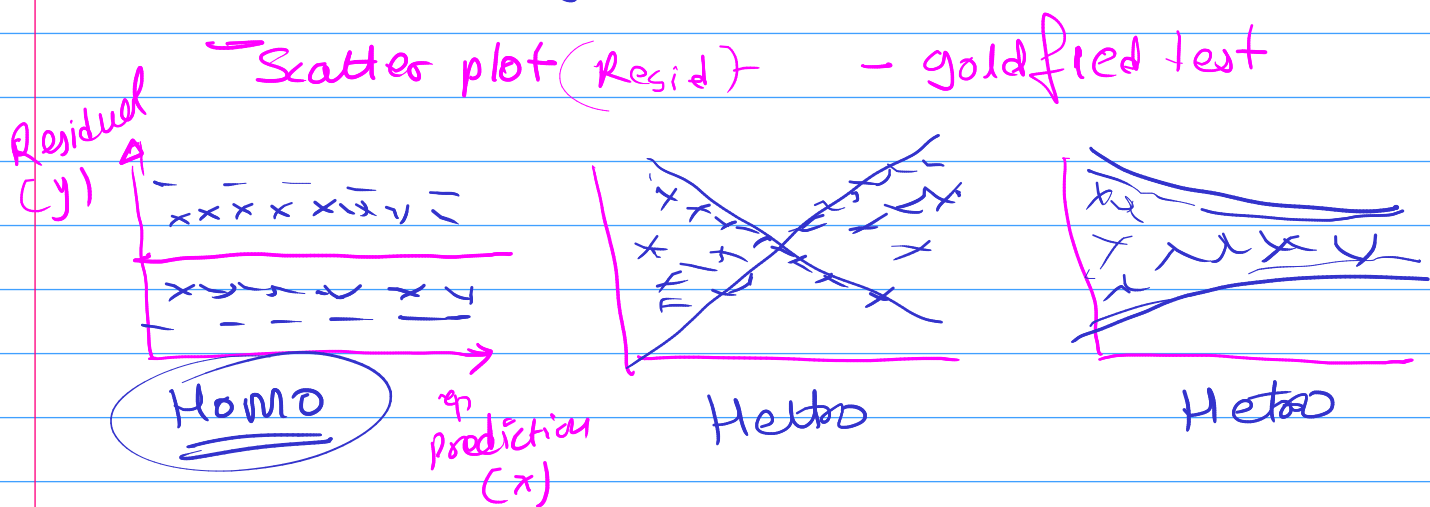 - Scatter plot (Resid) - goldfied test
Residual
(y)
Homo
prediction
(x)
Hetro
Hetro